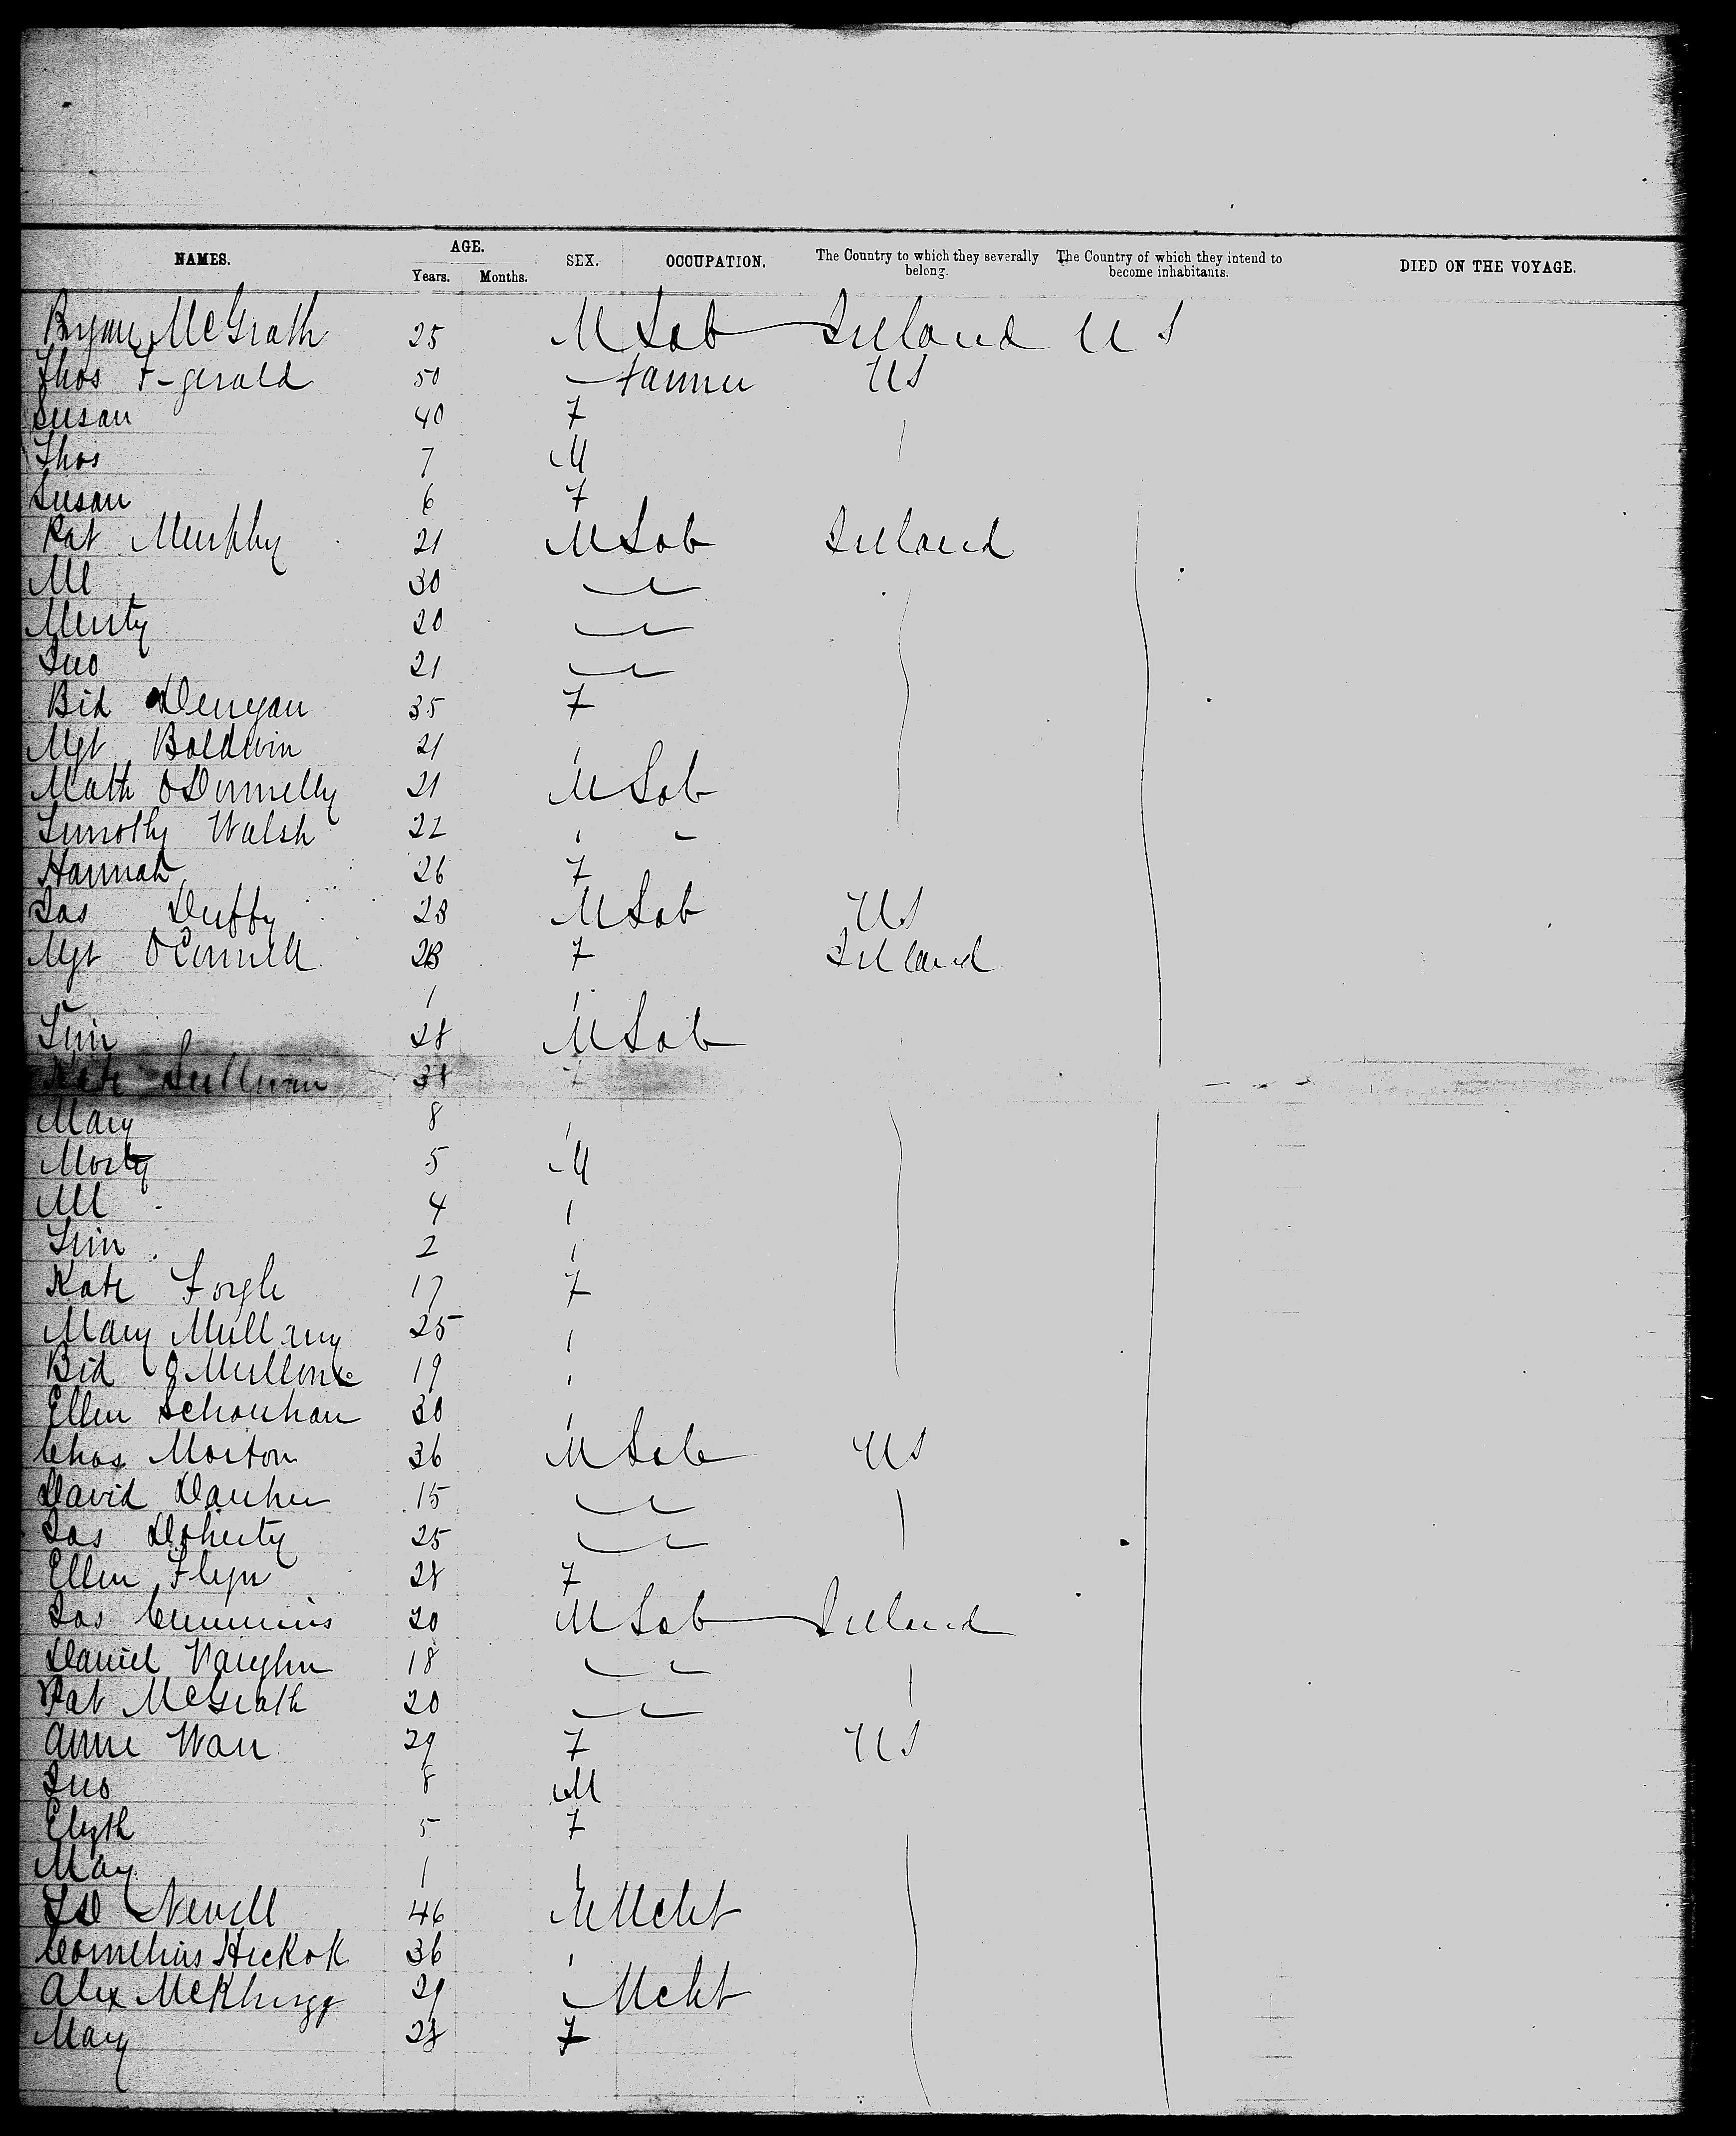 NAMES. AGE. Years. Months. SEX. OCCUPATION. The Country to which they severally belong. The Country of which they intend to become inhabitants. DIED ON THE VOYAGE.
Bryan McGrath 25 M Lab Ireland U S
Thos F-gerald 50 Farmer US
Susan 40 F
Thos 7 M
Susan 6 F
Pat Murphy 21 M Lab Ireland
Ml 30
Murty 20
Jno 21
Bid 35 F
Mgt Baldwin 21
Math O'Donnelly 21 M Lab
Timothy Walsh 22
Hannah 26 F
Jas Duffy 28 M Lab US
Mgt O'Connell 28 F Ireland
1
Tim 28 M Lab
Kate Sullivan 38 F
Mary 8
Morty 5 M
Ml 4
Tim 2
Kate 17 F
Mary Mullany 25
Bid 19
Ellen 30
Chas Morton 36 M Lab US
David 15
Jas Doherty 25
Ellen Flyn 28 F
Jas Cummins 20 M Lab Ireland
Daniel Vaughn 18
Pat McGrath 20
Anne 29 F US
Jno 8 M
Elizth 5 F
May 1
Newell 46 M Mcht
Cornelius Hickok 36
Alex 29 Mcht
Mary 28 F